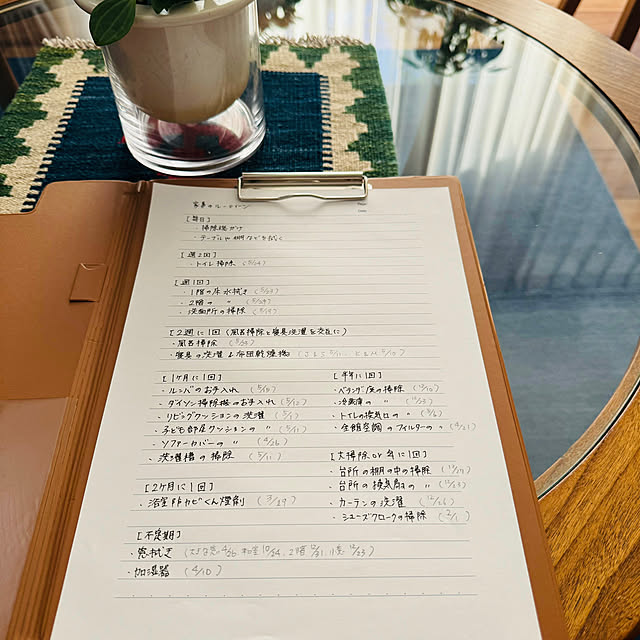 家事のルーティーン
[毎日]
・掃除機がけ
・テーブルや棚などを拭く
[週2回]
・トイレ掃除
[週1回]
・1階の床水拭き
・2階の 〃
・洗面所の掃除
[2週に1回 (風呂掃除と寝具洗濯を交互に)
・風呂掃除
・寝具の洗濯&布団乾燥機
[1ヶ月に1回]
・ルンバのお手入れ
・ダイソン掃除機のお手入れ
・リビングクッションの洗濯
・子ども部屋クッションの 〃
・ソファーカバーの 〃 (4/26)
・洗濯槽の掃除 (5/11)
[2ヶ月に1回]
・浴室防カビくん煙剤 (3/29)
[不定期]
・窓拭き
・加湿器 (4/10)
[半年に1回]
・ベランダ床の掃除
・冷蔵庫の 〃
・トイレの換気口の 〃 (3/6)
・全館空調のフィルターの 〃 (4/21)
[大掃除 or 年に1回]
・台所の棚の中の掃除
・台所の換気扇の 〃
・カーテンの洗濯
・シューズクロークの掃除 (2/1)